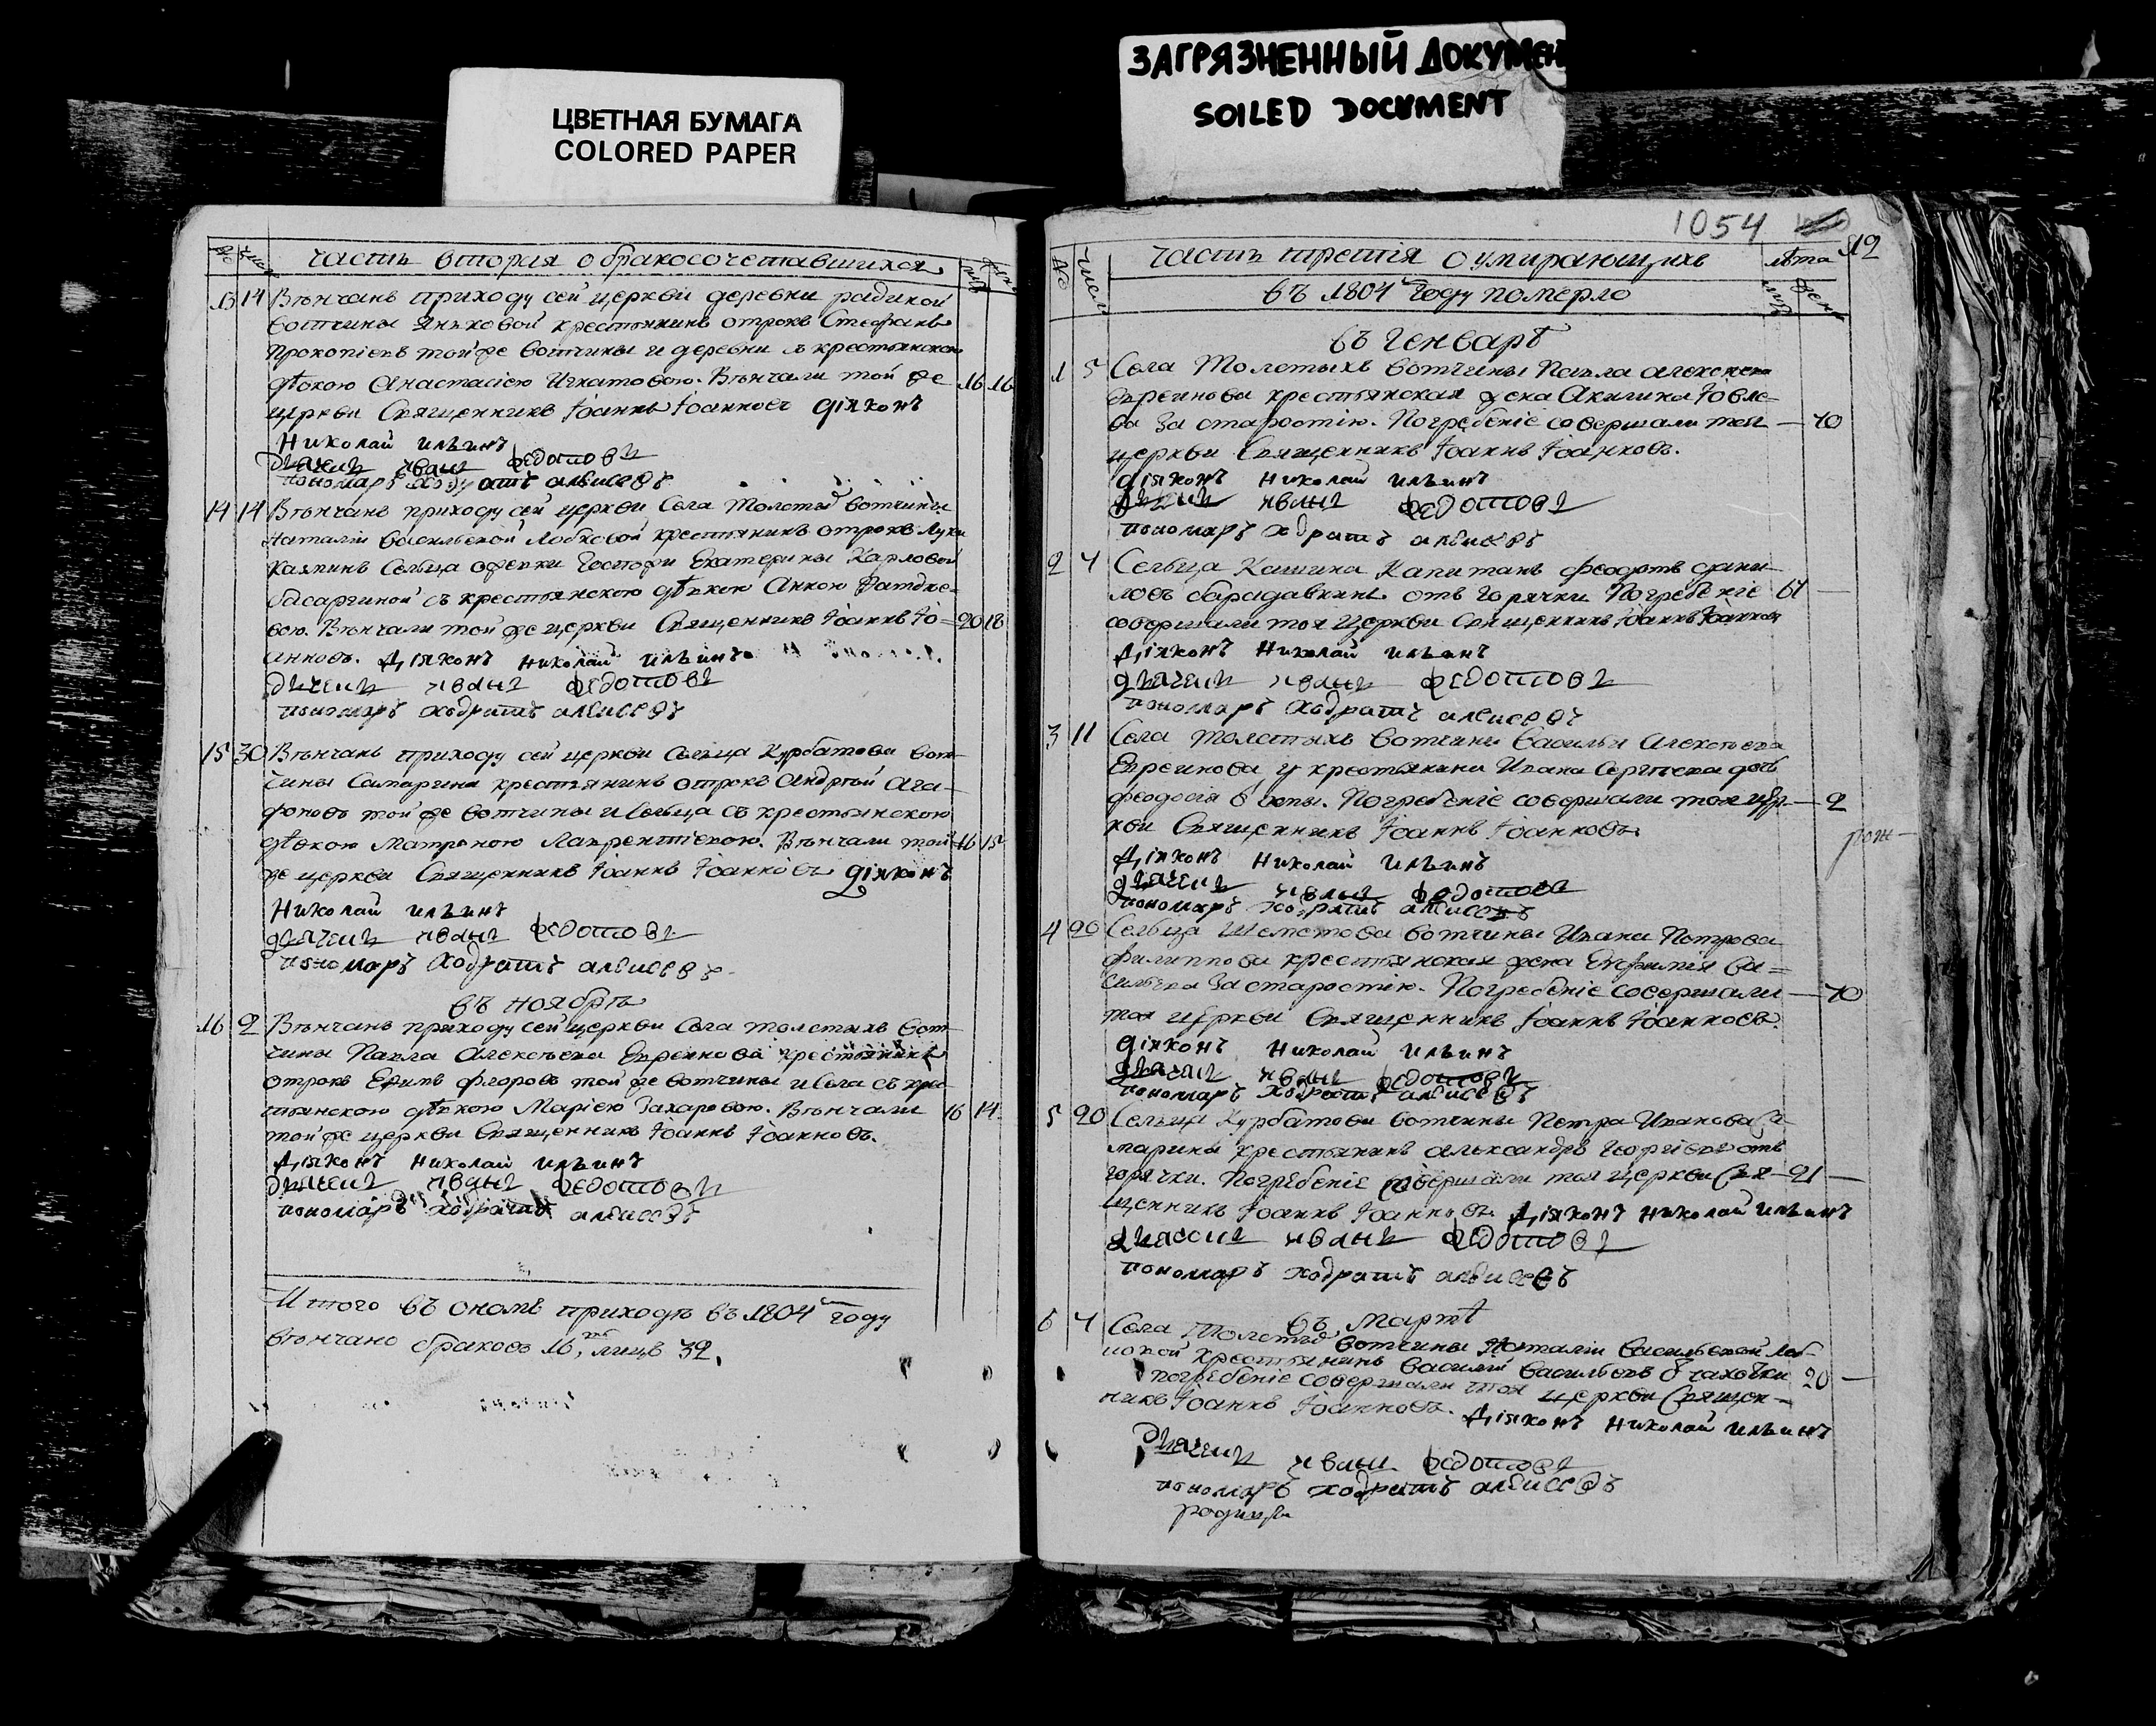 ЦВЕТНАЯ БУМАГА
COLORED PAPER
ЗАГРЯЗНЕННЫЙ ДОКУМЕН
SOILED DOCUMENT
1054
№ число часть вторая о бракосочетавшихся
13 14 Вѣнчанъ приходу сей церкви деревни радиной
вотчины Яньковой крестьянинъ отрокъ Стефанъ
Прокопіевъ той же вотчины и деревни съ крестьянскою
дѣвкою Анастасіею Игнатовою. Вѣнчали той же 16 16
церкви Священникъ Іоаннъ Іоанновъ діяконъ
Николай ильинъ
дьячекъ иванъ федотовъ
пономарь
14 14 Вѣнчанъ приходу сей церкви Села Толстыхъ вотчины
Наталіи Васильевой Лобковой крестьянинъ отрокъ Лука
Сельца Госпожи Екатерины Карловой
Басаргиной съ крестьянскою дѣвкою Анною
вою. Вѣнчали той же церкви Священникъ Іоаннъ Іо= 20 18
анновъ. Діяконъ николай ильинъ
дьячекъ иванъ федотовъ
пономарь кодратъ алексеевъ
15 30 Вѣнчанъ приходу сей церкви сельца Курбатова вот
чины Самарина крестьянинъ отрокъ Андрѣй Ага-
фоновъ той же вотчины и Сельца съ крестьянскою
дѣвкою Матроною Лаврентіевою. Вѣнчали той 16 15
же церкви Священникъ Іоаннъ Іоанновъ діяконъ
Николай ильинъ
дьячекъ иванъ федотовъ
пономарь кодратъ алексеевъ
въ ноябрѣ
16 2 Вѣнчанъ приходу сей церкви Села толстыхъ вот
чины Павла Алексѣева Евреинова крестьянинъ
отрокъ Ефимъ флоровъ той же вотчины и Села съ крес
тьянскою дѣвкою Маріею Захаровою. Вѣнчали 16 14
той же церкви Священникъ Іоаннъ Іоанновъ.
Діяконъ Николай ильинъ
дьячекъ иванъ федотовъ
пономарь кодратъ алексеевъ
Итого въ ономъ приходѣ въ 1804 году
вѣнчано браковъ 16, лицъ 32.
№ Число часть третія о умирающихъ лѣта 12
въ 1804 году померло
въ Генварѣ
1 5 Села Толстыхъ вотчины Павла алексѣева
Евреинова крестьянская жена Акилина Іовле-
ва за старостію. Погребеніе совершали тоя — 70
церкви Священникъ Іоаннъ Іоанновъ.
діяконъ Николай ильинъ
дьячекъ иванъ федотовъ
пономарь кодратъ алексеевъ
2 7 Сельца Кашина Капитанъ Феодотъ дани-
ловъ отъ Горячки Погребеніе 61 —
совершали тоя церкви Священникъ Іоаннъ Іоанновъ
Діяконъ Николай ильинъ
дьячекъ иванъ федотовъ
пономарь кодратъ алексеевъ
3 11 Села Толстыхъ вотчины Василья Алексѣева
Евреинова у крестьянина Ивана Сергѣева дочь
феодосія Погребеніе совершали тоя цер- — 2
кви Священникъ Іоаннъ Іоанновъ
Діяконъ Николай ильинъ
дьячекъ иванъ федотовъ
пономарь кодратъ алексеевъ
4 20 Сельца Шеметова вотчины Ивана Петрова
Филиппова крестьянская жена Евфимія Ва=
сильева за старостію. Погребеніе совершали — 70
тоя церкви Священникъ Іоаннъ Іоанновъ.
діяконъ Николай ильинъ
дьячекъ иванъ федотовъ
пономарь кодратъ алексеевъ
5 20 Сельца Курбатова вотчины Петра Иванова Са
марина крестьянинъ александръ Георгіевъ отъ
горячки. Погребеніе совершали тоя церкви Свя — 21 —
щенникъ Іоаннъ Іоанновъ. Діяконъ николай ильинъ
дьячекъ иванъ федотовъ
пономарь кодратъ алексеевъ
въ мартѣ
6 7 Села Толстыхъ вотчины Наталіи Васильевой Лоб-
ковой крестьянинъ Василій Васильевъ чахотки 20 —
погребеніе совершали тоя церкви Священ-
никъ Іоаннъ Іоанновъ. Діяконъ Николай ильинъ
дьячекъ иванъ федотовъ
пономарь кодратъ алексеевъ